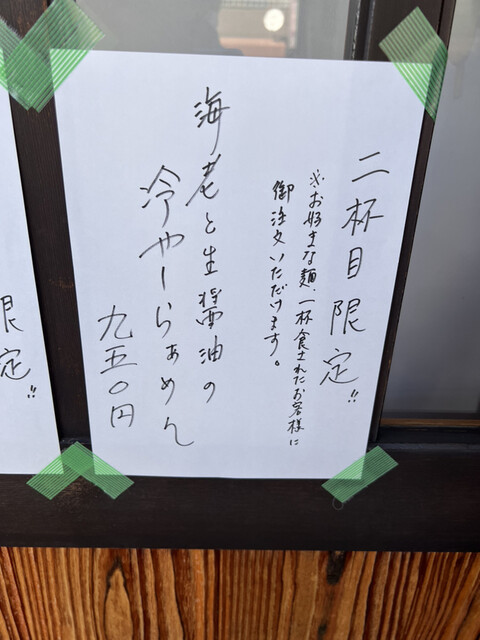 二杯目限定!!
※お好きな麺、一杯食されたお客様に
御注文いただけます。
海老と生醤油の
冷やーらぁめん
九五〇円
限定!!